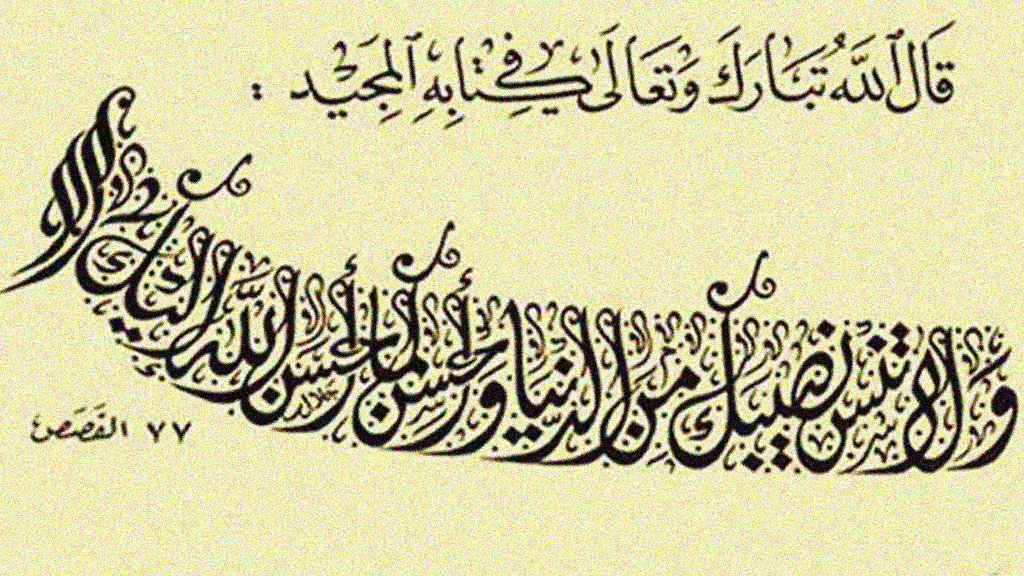 قَالَ ٱللَّه تُبَارَكَ وَتَعَالَى فِي كِتَابِهِ ٱلْمَجِيد :
وَلَا تَنسَ نَصِيبَكَ مِنَ الدُّنْيَا وَأَحْسِن كَمَا أَحْسَنَ اللَّهُ إِلَيْكَ
٧٧ القَصَص